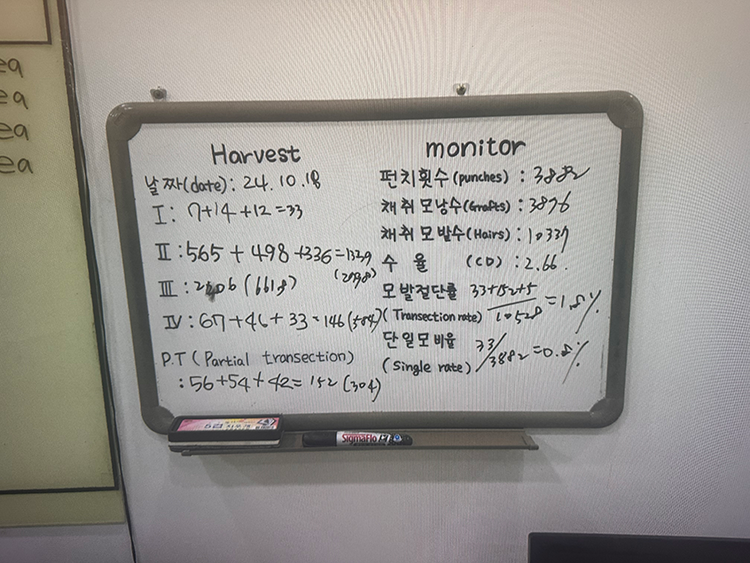 ea
ea
ea
ea
Harvest
날짜(date) : 24.10.18
I : 7+14+12=33
II : 565 + 498 +336=1399
(2798)
III : 2206 (6618)
IV : 67+46+33=146 (584)
P.T ( Partial transection)
: 56+54+42= 152 (304)
monitor
펀치횟수(punches) : 3882
채취 모낭수(Grafts) : 3876
채취 모발수(Hairs) : 10337
수 율 (CD) : 2.66.
모발절단률 33+152+5
( Transection rate) / 10528 =1.8%
단일모비율
(Single rate) 33/3882=0.8%
SigmaFlo